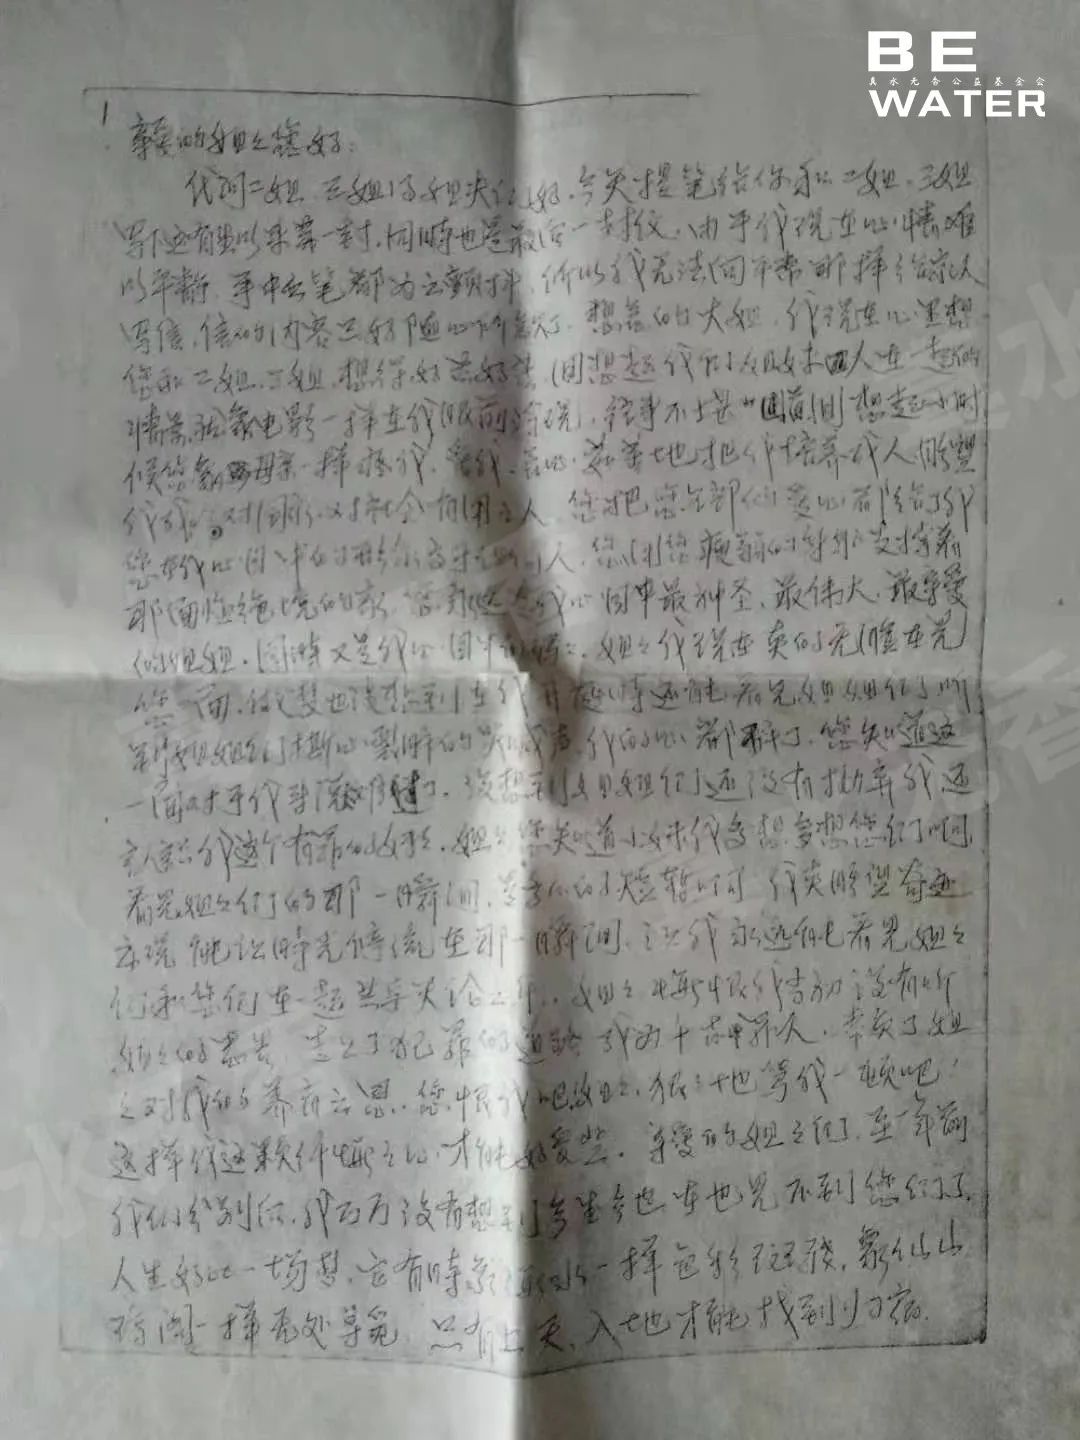 BE
真水无香公益基金会
WATER
1
亲爱的姐姐您好:
代问二姐、三姐好。今天提笔给你和二姐、三姐
写下还有生以来第一封,同时也是最后一封信,由于我现在心情难
以平静,手中的笔都为之颤抖,所以我无法向平常那样给家人
写信,信的内容只好随心所欲了。想念的大姐,我现在心里想
您和二姐、三姐,想得好苦好苦,回想起我们姐妹四人在一起的
情景就象电影一样在我眼前浮现,往事不堪回首,回想起小时
候您象母亲一样疼我、爱我,把我培养成人,盼望
我成为对国家、对社会有用之人,您把您全部的爱心都给了我
您在我心目中的形象高于所有人,您用您瘦弱的身躯支撑着
那面临绝境的家,您永远是我心目中最神圣、最伟大、最亲爱
的姐姐,同时又是我心目中的妈妈,姐姐我现在真的无脸在见
您一面,我做梦也没想到在我开庭时还能看见姐姐们,听
到姐姐们撕心裂肺的哭喊声,我的心都碎了,您知道这
一面对于我
没想到姐姐们还没有抛弃我还
认我这个有罪的妹妹,姐姐您知道小妹我多想多想您们啊
看见姐姐们的那一瞬间,是多么的短暂啊,我真盼望奇迹
出现能让时光停流在那一瞬间,让我永远能看见姐姐
们和您们在一起共享天伦之乐,姐姐悔恨我当初没有听
姐姐的忠告,走上了犯罪的道路,成为千古罪人,辜负了姐
姐对我的养育之恩,您恨我吧姐姐,狠狠地骂我一顿吧!
这样我这颗忏悔之心才能好受些。亲爱的姐姐们,至一年前
我们分别后,我万万没有想到今生今世在也见不到您们了,
人生好比一场梦,它有时象 一样色彩斑斓,象仙山
琼阁一样无处寻觅,只有上天、入地才能找到归宿。